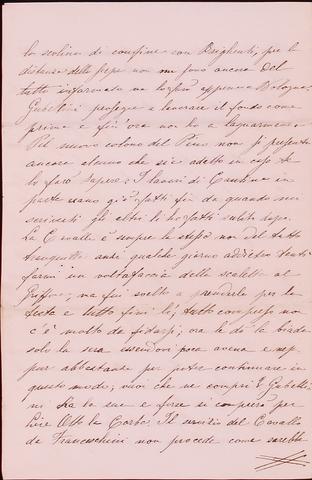 lo scolino di confine con Brighenti, per la
distanza delle pepe non me sono ancora del
tutto informato ma lo farò appena a Bologna.
Gabellini prosegue a lavorare il fondo come
prima e fin'ora non ho a lagnarmene.
Pel nuovo colono del Pino non si presenta
ancora alcuno che sia adatto in caso te
lo farò sapere. I lavori di Cantina in
parte erano già fatti fin da quando mi
scrivesti gli altri li ho fatti subito dopo.
La Cavalla è sempre la stessa non del tutto
tranquilla anzi qualche giorno addietro tentò
farmi un voltafaccia dalle scalette al
ma fui svelto a prenderla per la
testa e tutto finì lì; tutto compreso non
c'è molto da fidarsi; ora le do la biada
solo la sera essendovi poca avena e nep
pur abbastanza per poter continuare in
questo modo, vuoi che ne compri? Gabelli
ni ha la sua e forse si comprerà per
lire Otto la Corba. Il servizio del Cavallo
da Franceschini non procede come sarebbe